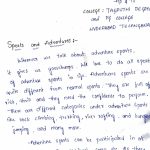 COLLEGE: TAPASYA DEGREE
AND PG COLLEGE
HYDERABAD TELANGANA
Sports and Adventures :-
Whenever we talk about adventure sports,
it gives us goosebumps will love to do all sports
of adventure sports in life. Adventure sports are
quite different from normal sports they are full of
risk, thrills and they need the caretakers to perform.
There are different categories under adventure sports
like rock climbing, trekking, river rafting, and bungee
jumping, and many more.
Adventure sports can be participated in at